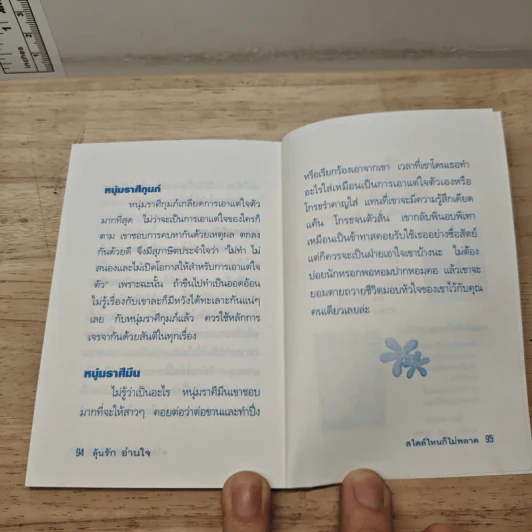 หนุ่มราศีกุมภ์
หนุ่มราศีกุมภ์เกลียดการเอาแต่ใจตัว
มากที่สุด ไม่ว่าจะเป็นการเอาแต่ใจของใครก็
ตาม เขาชอบการคบหากันด้วยเหตุผล ตกลง
กันด้วยดี จึงมีสุภาษิตประจำใจว่า "ไม่ทำ ไม่
สนองและไม่เปิดโอกาสให้สำหรับการเอาแต่ใจ
ตัว" เพราะฉะนั้น ถ้าขืนไปทำเป็นออดอ้อน
ไม่รู้เรื่องกับเขาละก็มีหวังได้ทะเลาะกันแน่ๆ
เลย กับหนุ่มราศีกุมภ์แล้ว ควรใช้หลักการ
เจรจากันด้วยสันติในทุกเรื่อง
หนุ่มราศีมีน
ไม่รู้ว่าเป็นอะไร หนุ่มราศีมีนเขาชอบ
มากที่จะให้สาวๆ คอยต่อว่าต่อขานและทำปึ่ง
94 ลุ้นรัก อ่านใจ
หรือเรียกร้องเอาจากเขา เวลาที่เขาโดนเธอทำ
อะไรใส่เหมือนเป็นการเอาแต่ใจตัวเองหรือ
โกรธรำคาญใส่ แทนที่เขาจะมีความรู้สึกเคียด
แค้น โกรธจนตัวสั่น เขากลับพินอบพิเทา
เหมือนเป็นข้าทาสคอยรับใช้เธออย่างซื่อสัตย์
แต่ก็ควรจะเป็นฝ่ายเอาใจเขาบ้างนะ ไม่ต้อง
บ่อยนักหรอกพอหอมปากหอมคอ แล้วเขาจะ
ยอมตายถวายชีวิตมอบหัวใจของเขาไว้กับคุณ
คนเดียวเลยล่ะ
สไตล์ไหนก็ไม่พลาด 95
inches
1
2
3